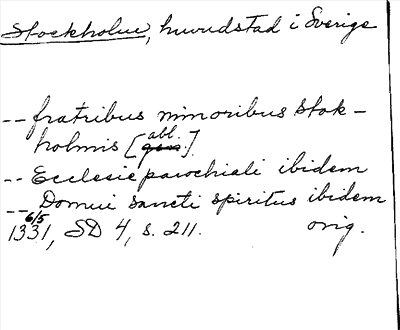 Stockholm, huvudstad i Sverige
-- fratribus minoribus Stok-
holmis [gen. abl.].
-- Ecclesie parochiali ibidem
-- Domui sancti spiritus ibidem
1331, 6/5 SD 4, s. 211. orig.